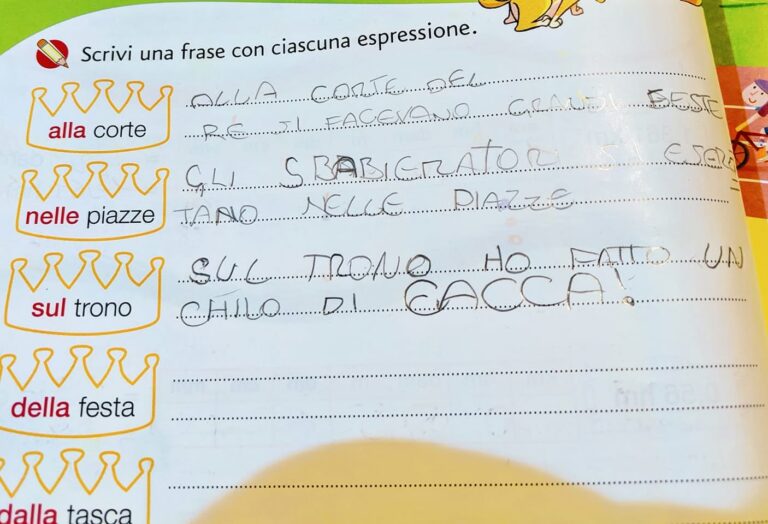 Scrivi una frase con ciascuna espressione.
alla corte
ALLA CORTE DEL
RE SI FACEVANO GRANDI FESTE
nelle piazze
GLI SBABIERATORI SI ESERCI
TANO NELLE PIAZZE
sul trono
SUL TRONO HO FATTO UN
CHILO DI CACCA!
della festa
dalla tasca